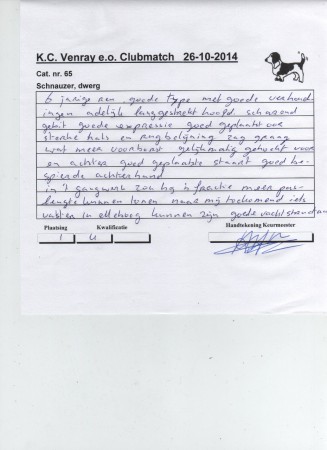 K.C. Venray e.o. Clubmatch 26-10-2014
Cat. nr. 65
Schnauzer, dwerg
6 jarige reu goede type met goede verhoud-
ingen adelijk langgestrekt hoofd. scharend
gebit goede expressie goed geplaatst oor
sterke hals en rugbelijning zag graag
wat meer voorborst gelijkmatig gehoekt voor
en achter goed geplaatste staart goed be-
spierde achterhand
in 't gangwerk zou hij 'n fractie meer pas-
lengte kunnen tonen maar mij toekomend iets
vaster in elleboog kunnen zijn goede vachtstructuur
Plaatsing Kwalificatie Handtekening Keurmeester
1 U